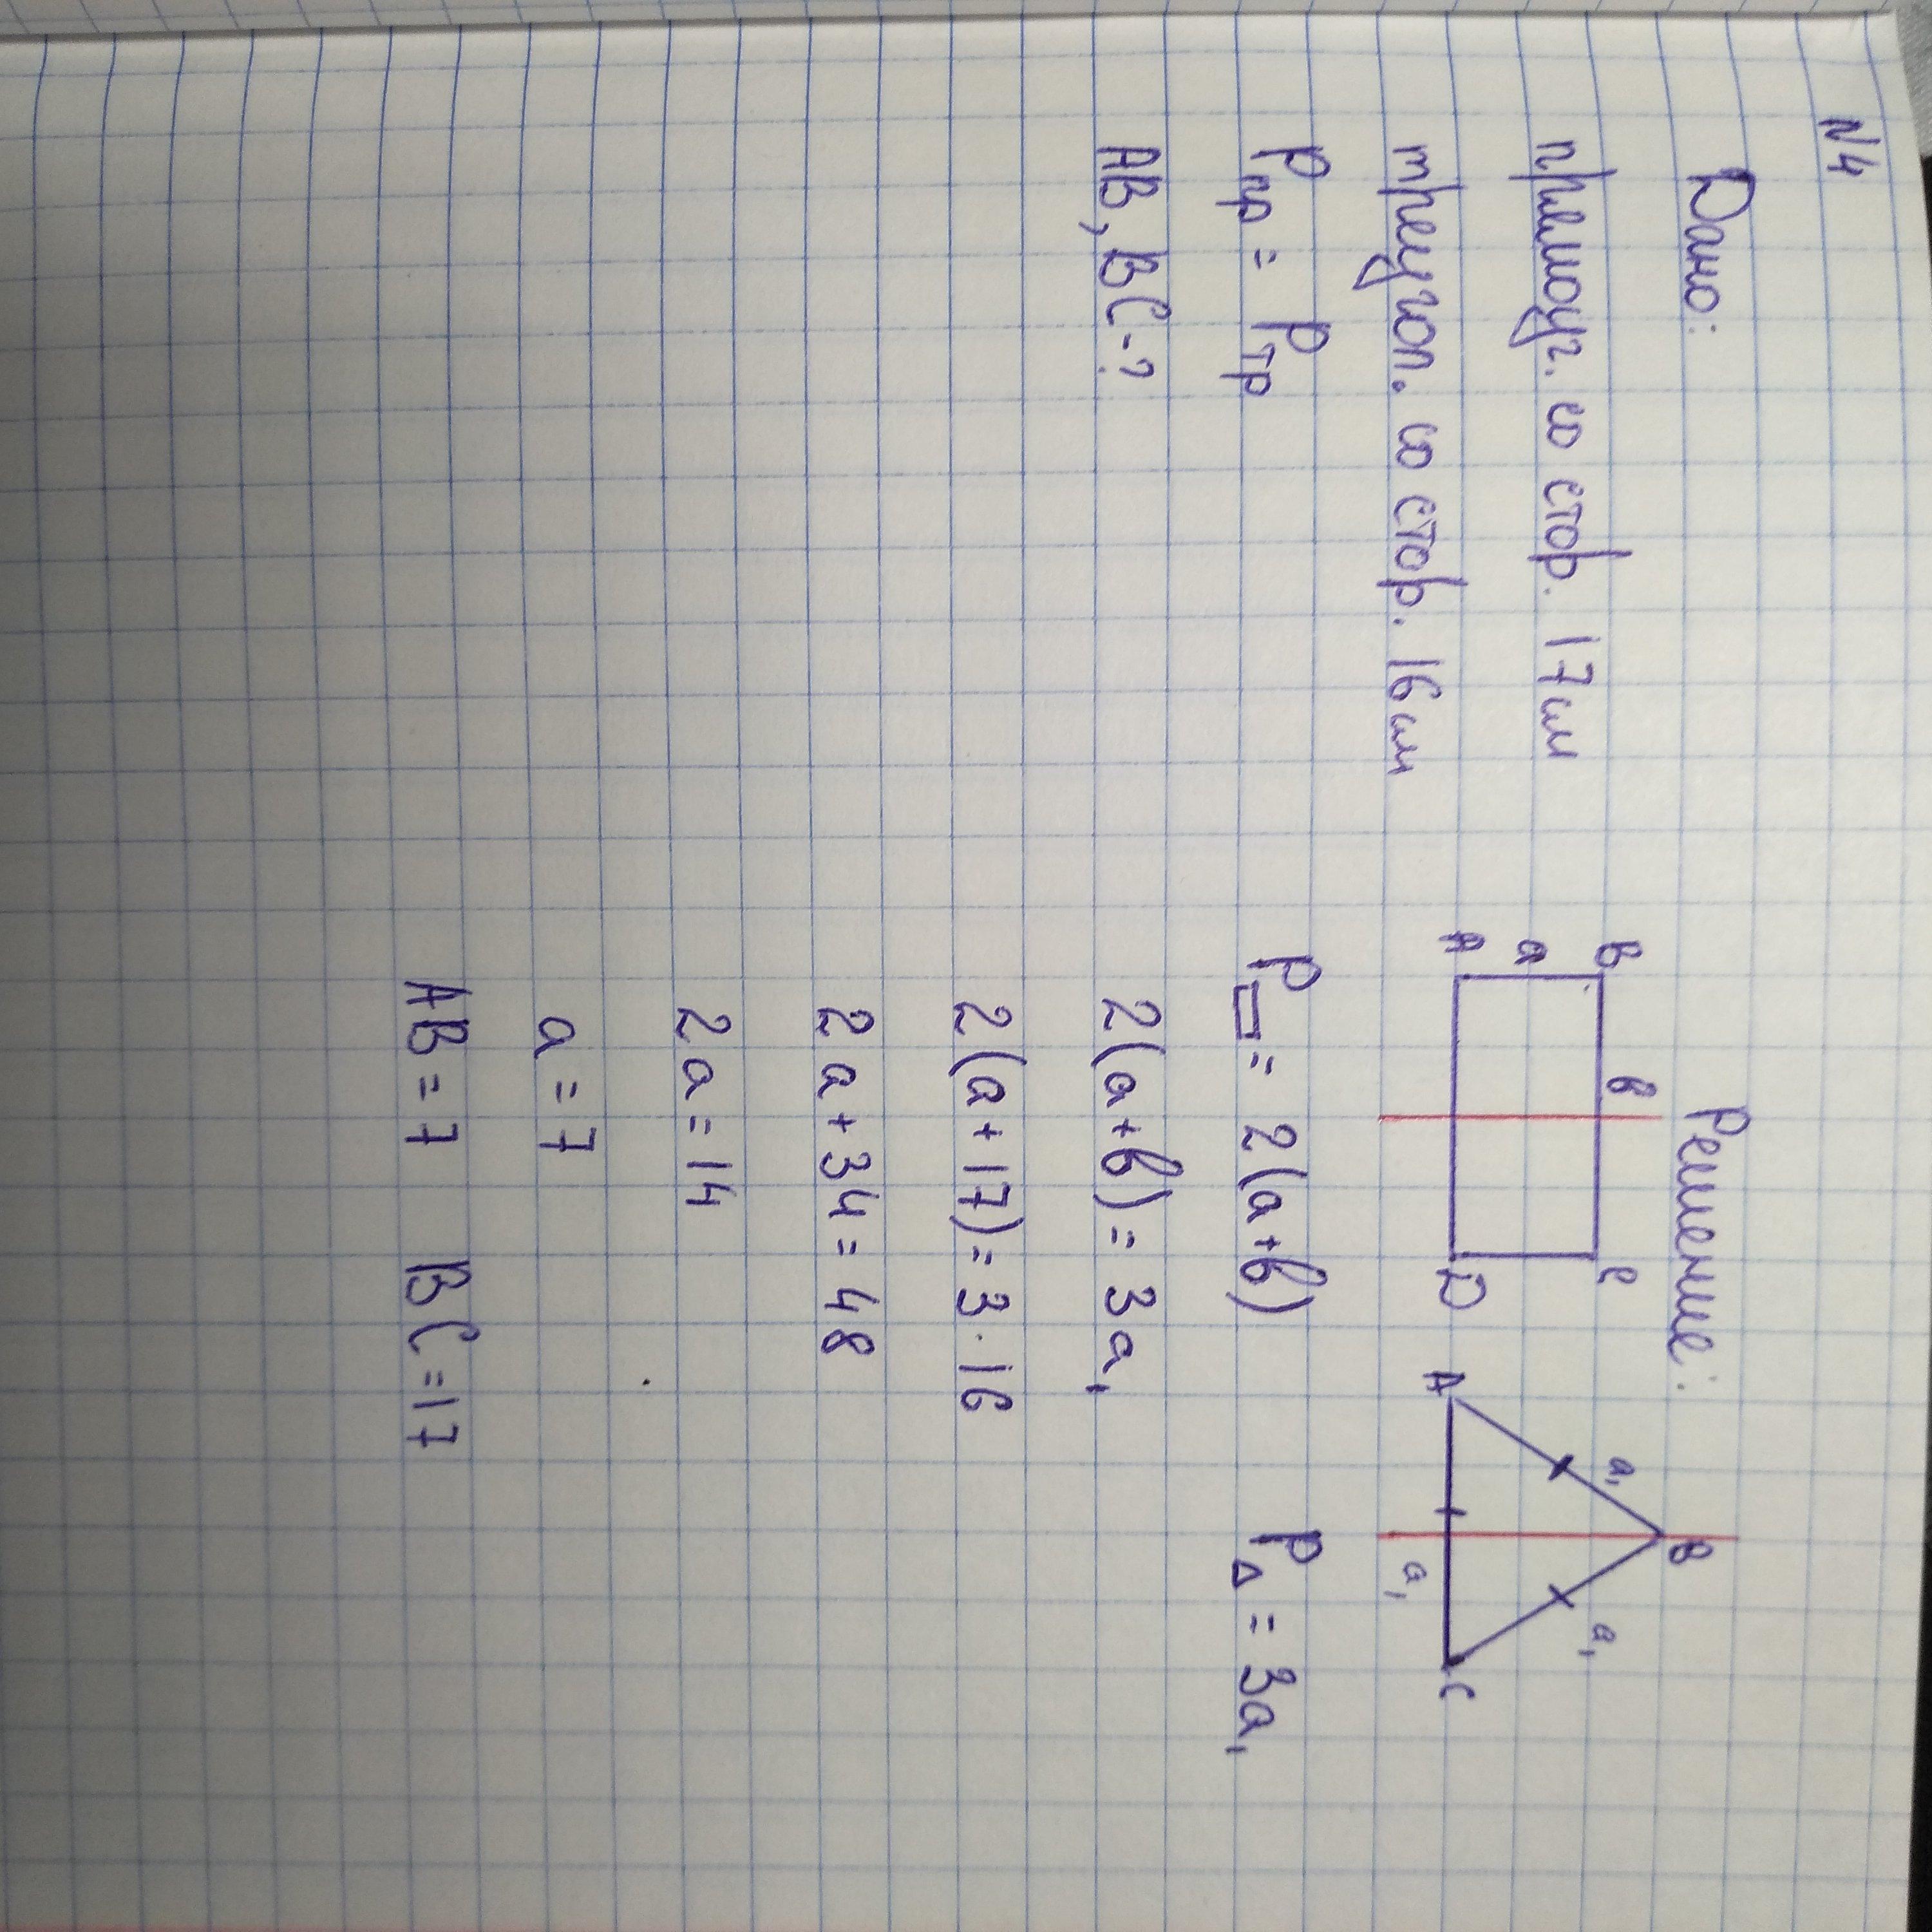 N4
Дано:
прямоуг. со стор. 17см
треугол. со стор. 16см
Pпр = Pтр
AB, BC - ?
Решение:
B в C
a
A D
B
a₁ a₁
A a₁ C
P▭ = 2(a+в) P△ = 3a₁
2(a+в) = 3a₁
2(a+17) = 3·16
2a+34 = 48
2a = 14
a = 7
AB = 7 BC = 17